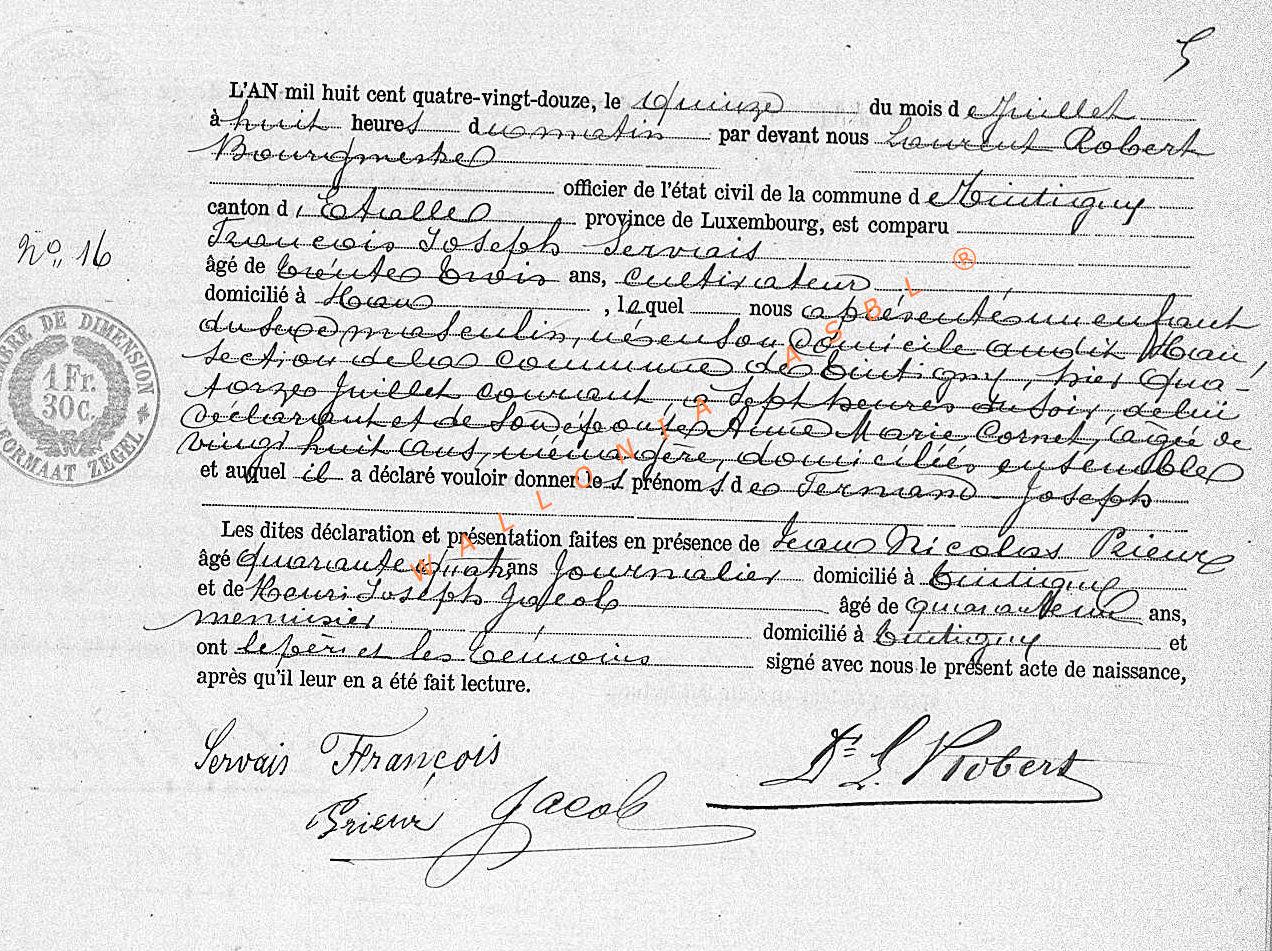 5
L'AN mil huit cent quatre-vingt-douze, le quinze du mois de Juillet
à huit heures du matin par devant nous Laurent Robert
Bourgmestre
officier de l'état civil de la commune de Tintigny
canton d'Etalle province de Luxembourg, est comparu
François Joseph Servais
No. 16
âgé de trente trois ans, cultivateur
domicilié à Han, lequel nous a présenté un enfant
du sexe masculin, né en son domicile audit Han,
section de la commune de Tintigny, hier qua-
torze Juillet courant, à sept heures du soir, de lui
déclarant et de son épouse Anne Marie Cornet, âgée de
vingt huit ans, ménagère, domiciliés ensemble
et auquel il a déclaré vouloir donner les prénoms de Fernand Joseph
Les dites déclaration et présentation faites en présence de Jean Nicolas Prieur
âgé quarante quatre ans Journalier domicilié à Tintigny
et de Henri Joseph Jacob âgé de quarante un ans,
menuisier domicilié à Tintigny et
ont le père et les témoins signé avec nous le présent acte de naissance,
après qu'il leur en a été fait lecture.
TIMBRE DE DIMENSION
1 Fr.
30 C.
FORMAAT ZEGEL
WALLONIA ASBL ®
Servais François
Dr L Robert
Prieur Jacob